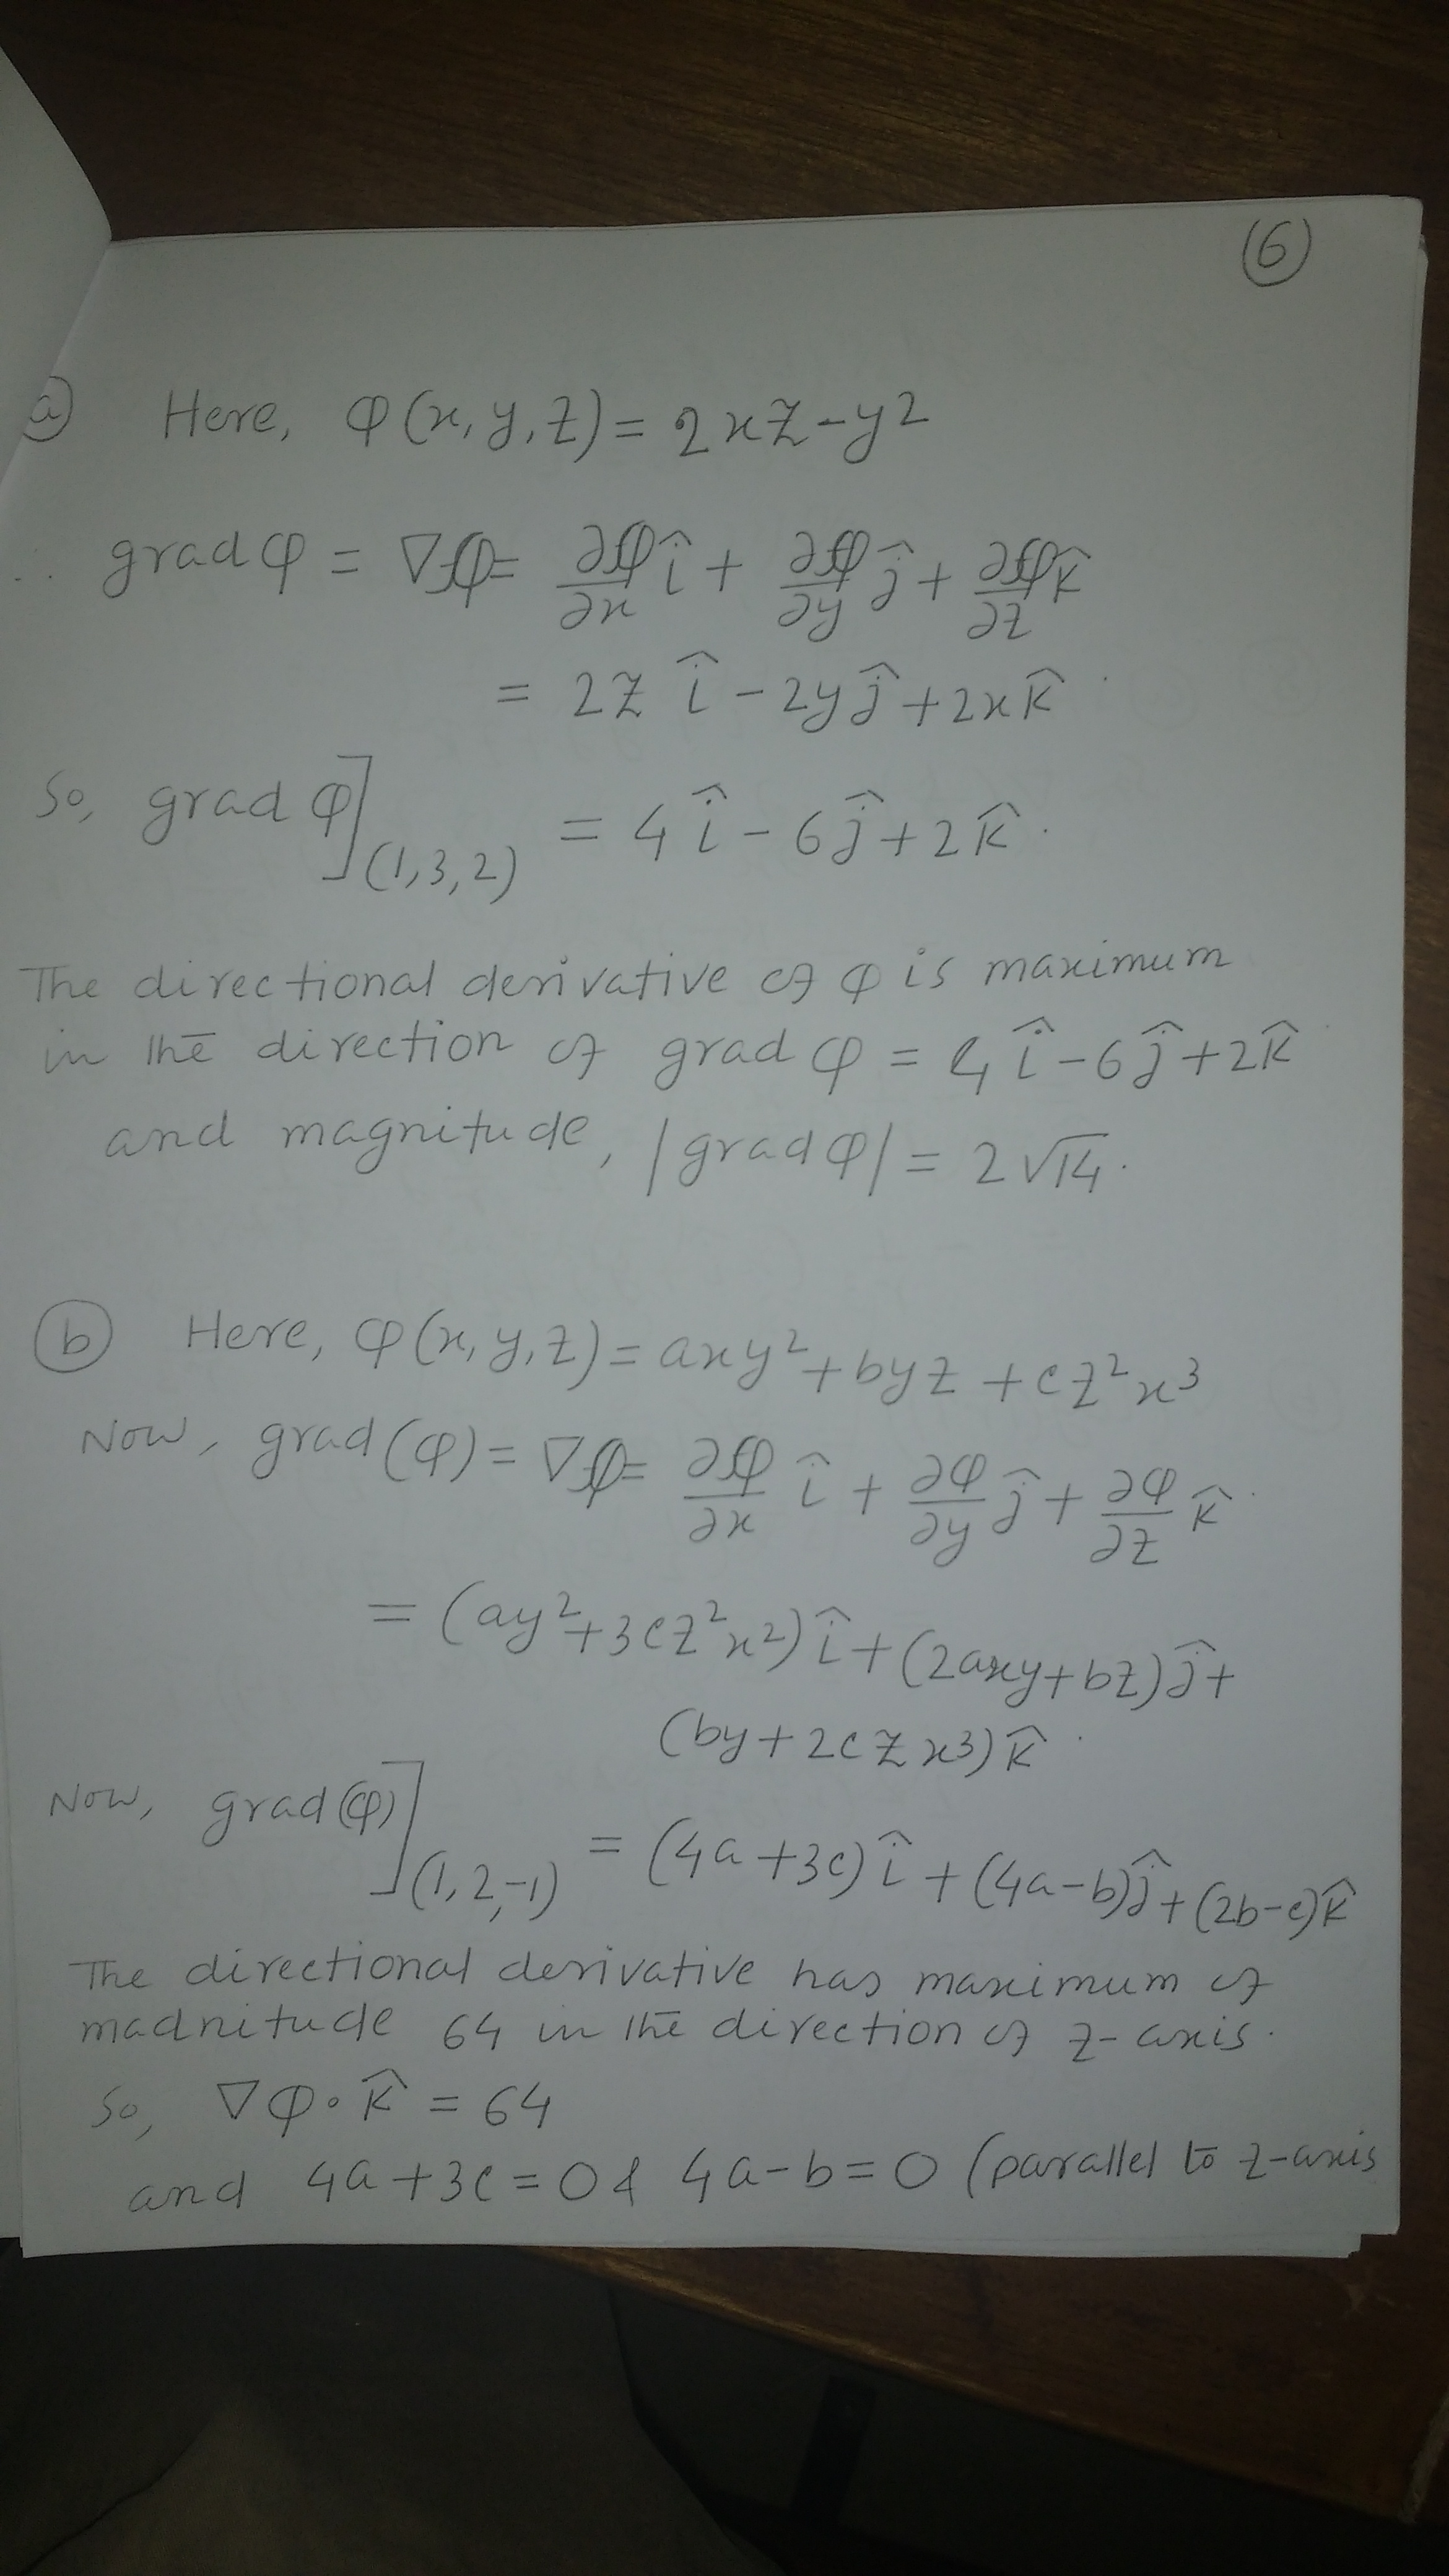 (6)
(a) Here, φ(x, y, z) = 2xz - y²
∴ grad φ = ∇φ = ∂φ/∂x î + ∂φ/∂y ĵ + ∂φ/∂z k̂
= 2z î - 2y ĵ + 2x k̂.
So, grad φ](1, 3, 2) = 4 î - 6 ĵ + 2 k̂.
The directional derivative of φ is maximum
in the direction of grad φ = 4 î - 6 ĵ + 2 k̂
and magnitude, |grad φ| = 2√14.
(b) Here, φ(x, y, z) = axy² + byz + cz²x³
Now, grad(φ) = ∇φ = ∂φ/∂x î + ∂φ/∂y ĵ + ∂φ/∂z k̂.
= (ay² + 3cz²x²) î + (2axy + bz) ĵ +
(by + 2czx³) k̂.
Now, grad(φ)](1, 2, -1) = (4a + 3c) î + (4a - b) ĵ + (2b - c) k̂
The directional derivative has maximum of
madnitude 64 in the direction of z-axis.
So, ∇φ · k̂ = 64
and 4a + 3c = 0 & 4a - b = 0 (parallel to z-axis